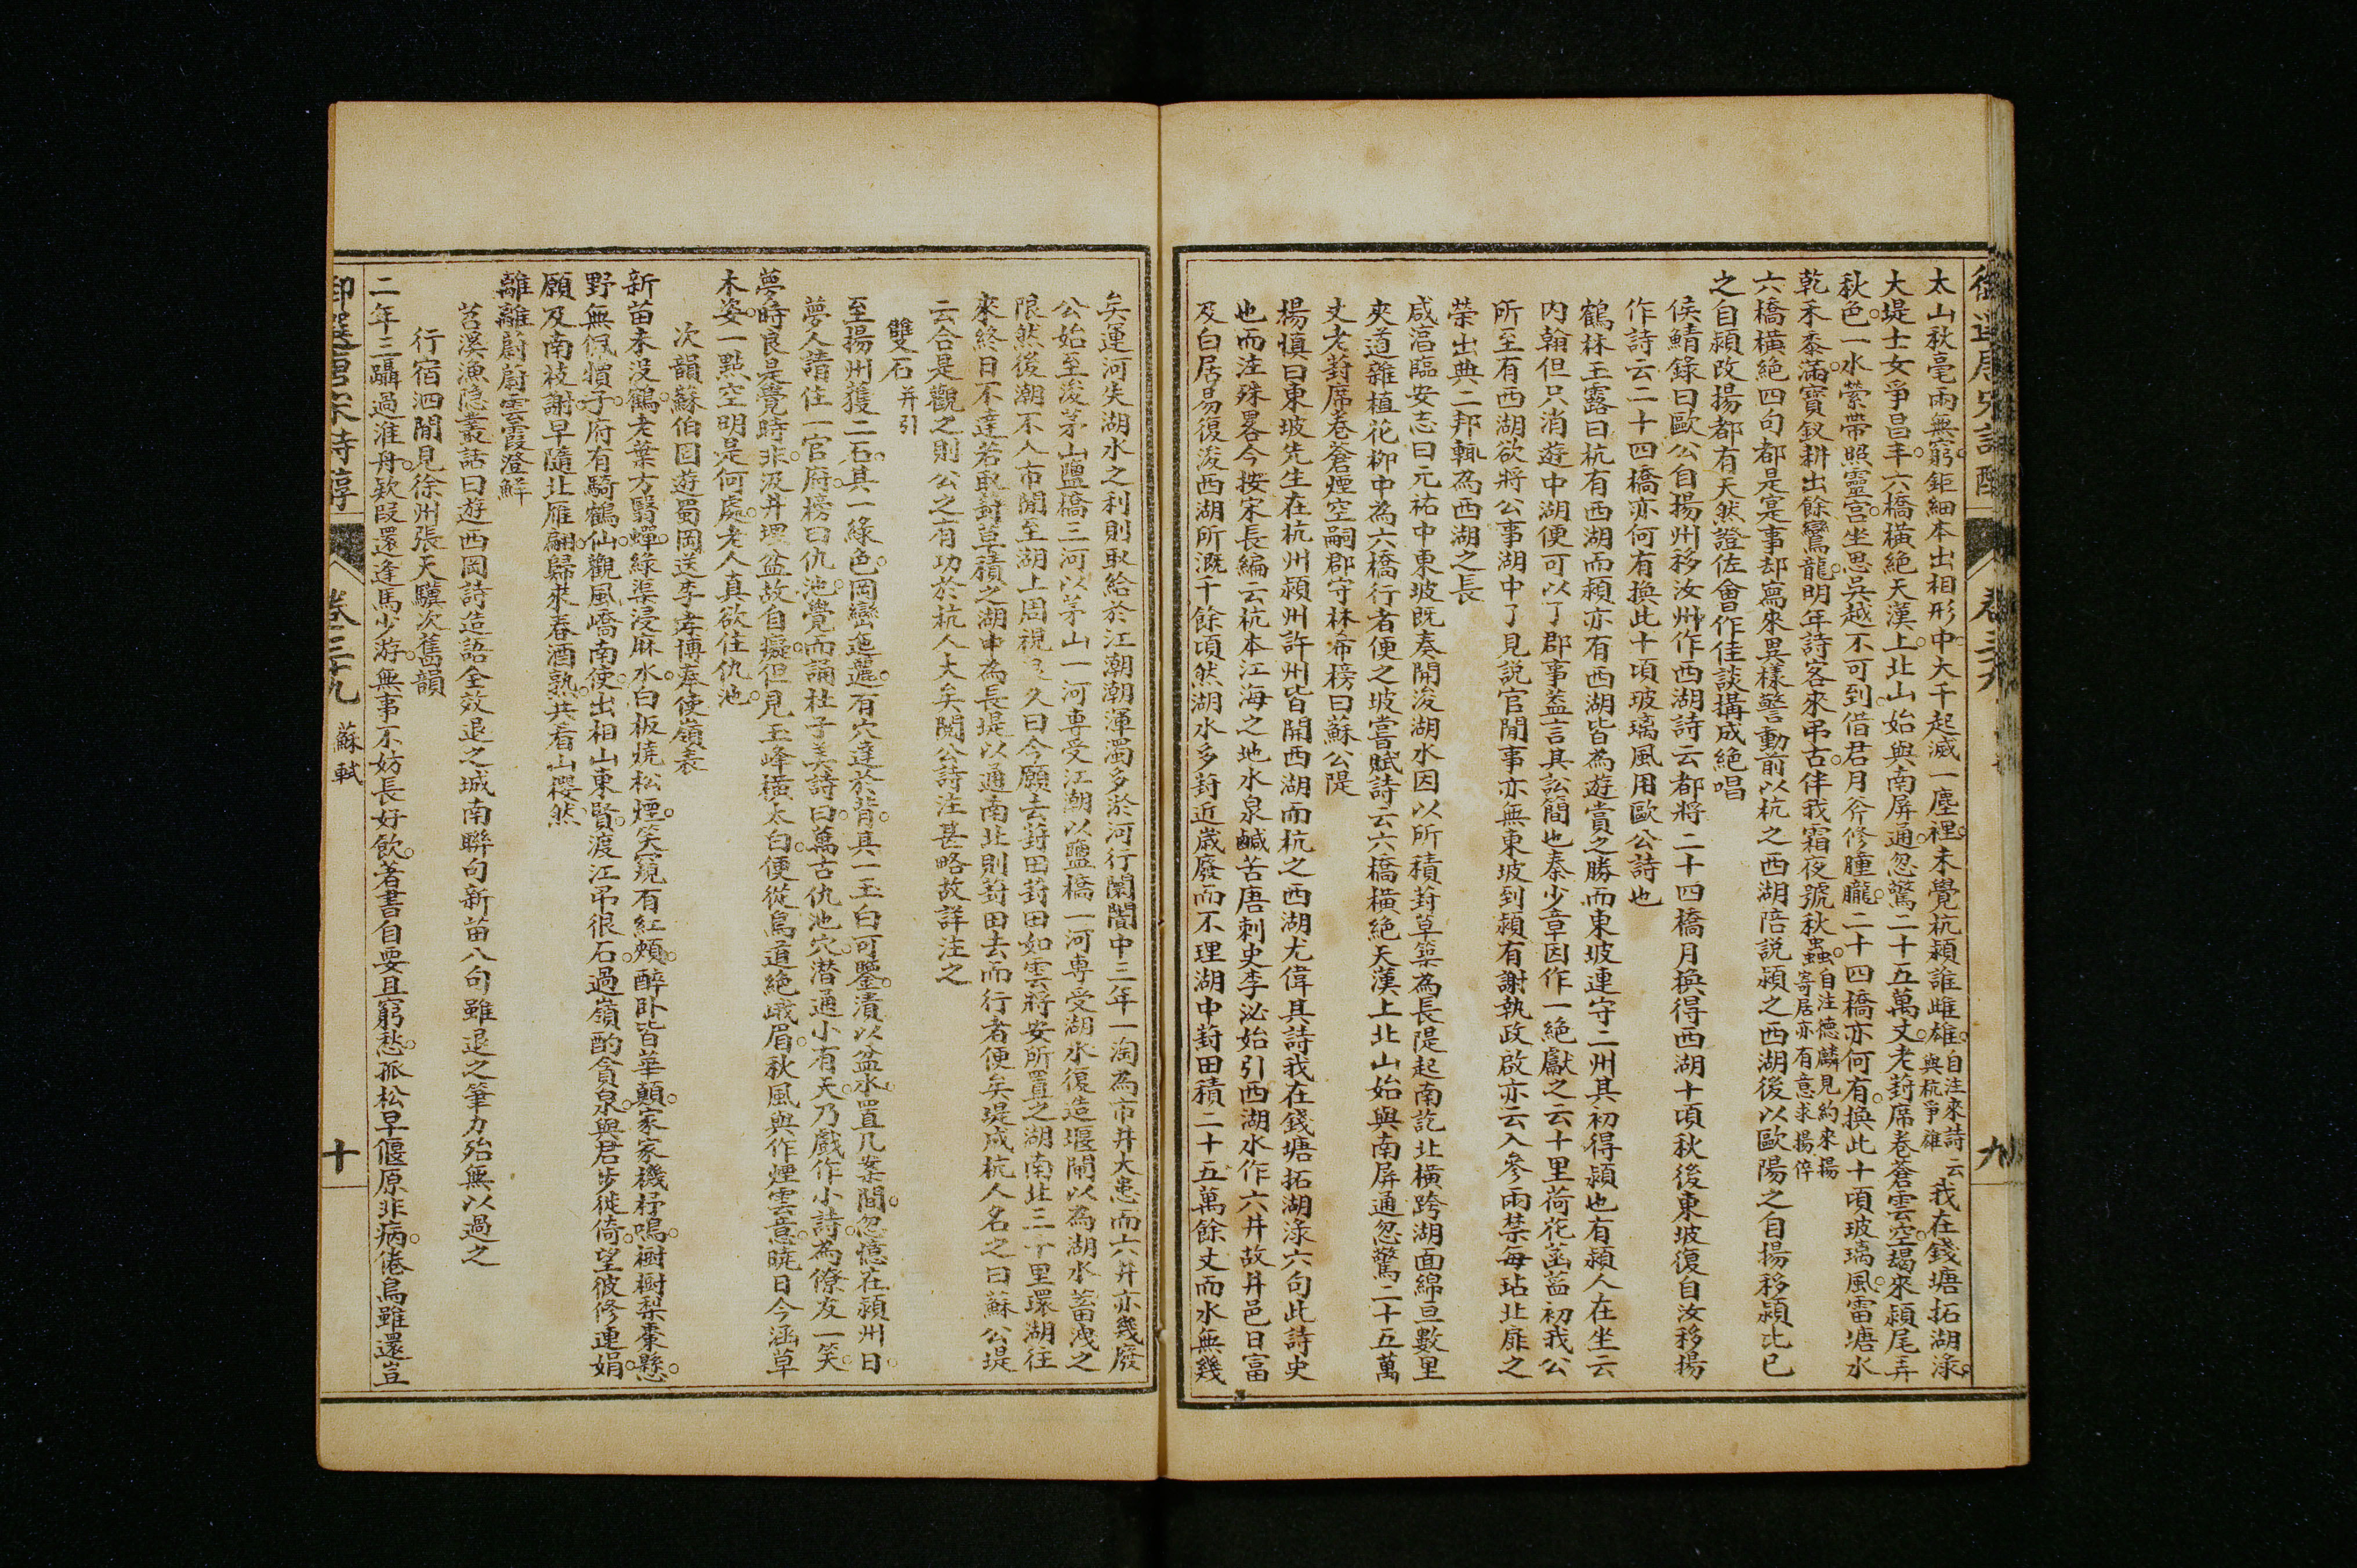 太山秋毫兩無窮鉅細本出相形中大千起滅一塵裡未覺杭潁誰雌雄自注來詩云與杭爭雄我在錢塘拓湖淥
大堤士女爭昌丰六橋橫絕天漢上北山始與南屏通忽驚二十五萬丈老葑席卷蒼雲空朅來潁尾弄
秋色一水縈帶照靈宮坐思吳越不可到借君月斧修朣朧二十四橋亦何有換此十頃玻璃風雷塘水
乾禾黍滿寶釵耕出餘鸞龍明年詩客來弔古伴我霜夜號秋蟲自注德麟見約來揚寄居亦有意求揚倅
六橋橫絕四句都是寔事却寫來異樣警動前以杭之西湖陪說潁之西湖後以歐陽之自揚移潁比已
之自潁改揚都有天然證佐會作佳談搆成絕唱
侯鯖錄曰歐公自揚州移汝州作西湖詩云都將二十四橋月換得西湖十頃秋後東坡復自汝移揚
作詩云二十四橋亦何有換此十頃玻璃風用歐公詩也
鶴林玉露曰杭有西湖而潁亦有西湖皆為遊賞之勝而東坡連守二州其初得潁也有潁人在坐云
內翰但只消遊中湖便可以了郡事蓋言其訟簡也秦少章因作一絕獻之云十里荷花菡萏初我公
所至有西湖欲將公事湖中了見說官閒事亦無東坡到潁有謝執政啟亦云入參兩禁每玷北扉之
榮出典二邦輒為西湖之長
咸淳臨安志曰元祐中東坡既奏開浚湖水因以所積葑草築為長隄起南訖北橫跨湖面綿亘數里
夾道雜植花柳中為六橋行者便之坡嘗賦詩云六橋橫絕天漢上北山始與南屏通忽驚二十五萬
丈老葑席卷蒼煙空嗣郡守林希榜曰蘇公隄
楊慎曰東坡先生在杭州潁州許州皆開西湖而杭之西湖尤偉其詩我在錢塘拓湖淥六句此詩史
也而注殊畧今按宋長編云杭本江海之地水泉鹹苦唐刺史李泌始引西湖水作六井故井邑日富
及白居易復浚西湖所溉千餘頃然湖水多葑近歲廢而不理湖中葑田積二十五萬餘丈而水無幾
卷三十九
九
矣運河失湖水之利則取給於江潮潮渾濁多淤河行闤闠中三年一淘為市井大患而六井亦幾廢
公始至浚茅山鹽橋二河以茅山一河專受江潮以鹽橋一河專受湖水復造堰閘以為湖水蓄洩之
限然後潮不入市閒至湖上周視良久曰今願去葑田葑田如雲將安所置之湖南北三十里環湖往
來終日不達若取葑草積之湖中為長堤以通南北則葑田去而行者便矣堤成杭人名之曰蘇公堤
云合是觀之則公之有功於杭人大矣閱公詩注甚略故詳注之
雙石并引
至揚州獲二石其一綠色岡巒迤邐有穴達於背其一玉白可鑒漬以盆水置几案間忽憶在潁州日
夢人請住一官府榜曰仇池覺而誦杜子美詩曰萬古仇池穴潛通小有天乃戲作小詩為僚友一笑
夢時良是覺時非汲井埋盆故自癡但見玉峰橫太白便從鳥道絕峨眉秋風與作煙雲意曉日令涵草
木姿一點空明是何處老人真欲住仇池
次韻蘇伯固遊蜀岡送李孝博奉使嶺表
新苗未沒鶴老葉方翳蟬綠渠浸麻水白板燒松煙笑窺有紅頰醉卧皆華顛家家機杼鳴樹樹梨棗懸
野無佩犢子府有騎鶴仙觀風嶠南使出相山東賢渡江弔很石過嶺酌貪泉與君步徙倚望彼修連娟
願及南枝謝早隨北雁翩歸來春酒熟共看山櫻然
離離蔚蔚雲霞澄鮮
苕溪漁隱叢話曰遊西岡詩造語全效退之城南聯句新苗八句雖退之筆力殆無以過之
行宿泗間見徐州張天驥次舊韻
二年三躡過淮舟欵段還逢馬少游無事不妨長好飲著書自要且窮愁孤松早偃原非病倦鳥雖還豈
御選唐宋詩醇
卷三十九
蘇軾
十